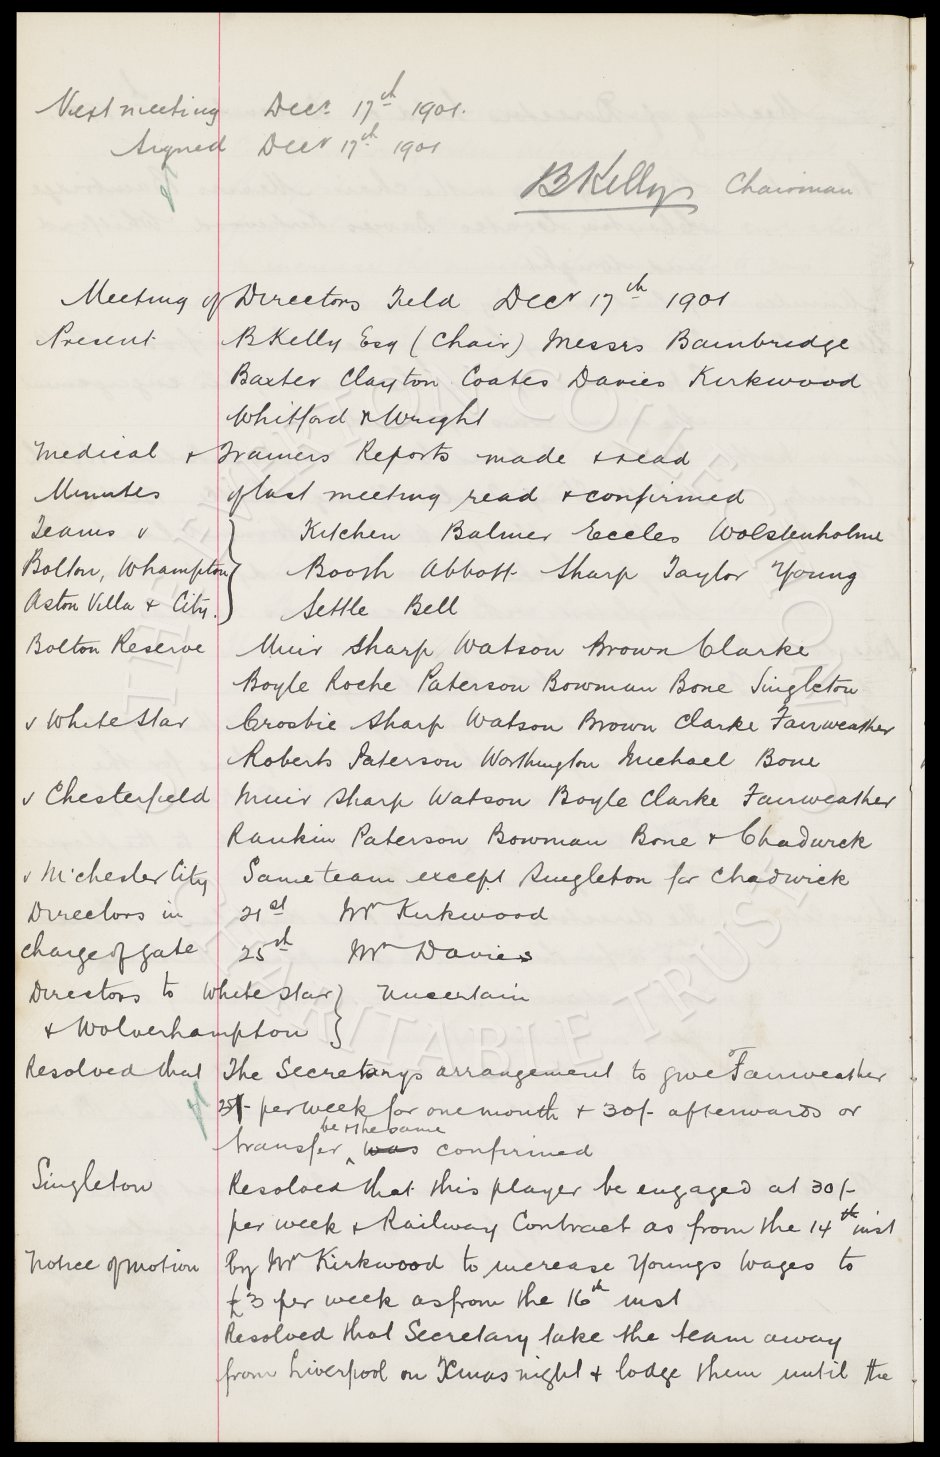 Next meeting Decr. 17th 1901.
Signed Decr 17th 1901
B Kelly Chairman
Meeting of Directors Held Decr 17th 1901
Present B Kelly Esq (Chair) Messrs Bainbridge
Baxter Clayton Coates Davies Kirkwood
Whitford & Wright
Medical & Trainers Reports made & read
Minutes of last meeting read & confirmed
Teams v } Kitchen Balmer Eccles Wolstenholme
Bolton, Whampton } Booth Abbott Sharp Taylor Young
Aston Villa & City. } Settle Bell
Bolton Reserve Muir Sharp Watson Brown Clarke
Boyle Roche Paterson Bowman Bone Singleton
v White Star Crosbie Sharp Watson Brown Clarke Fairweather
Roberts Paterson Worthington Michael Bone
v Chesterfield Muir Sharp Watson Boyle Clarke Fairweather
Rankin Paterson Bowman Bone & Chadwick
v M'chester City Same team except Singleton for Chadwick
Directors in 21st Mr Kirkwood
charge of gate 25th Mr Davies
Directors to White Star } Uncertain
& Wolverhampton }
Resolved that The Secretarys arrangement to give Fairweather
25/- per week for one month & 30/- afterwards or
be & the same
transfer ^ was confirmed
Singleton Resolved that this player be engaged at 30/-
per week & Railway Contract as from the 14th inst
Notice of motion by Mr Kirkwood to increase Youngs wages to
£3 per week as from the 16th inst
Resolved that Secretary take the team away
from Liverpool on Xmas night & lodge them until the
EVERTON COLLECTION CHARITABLE TRUST